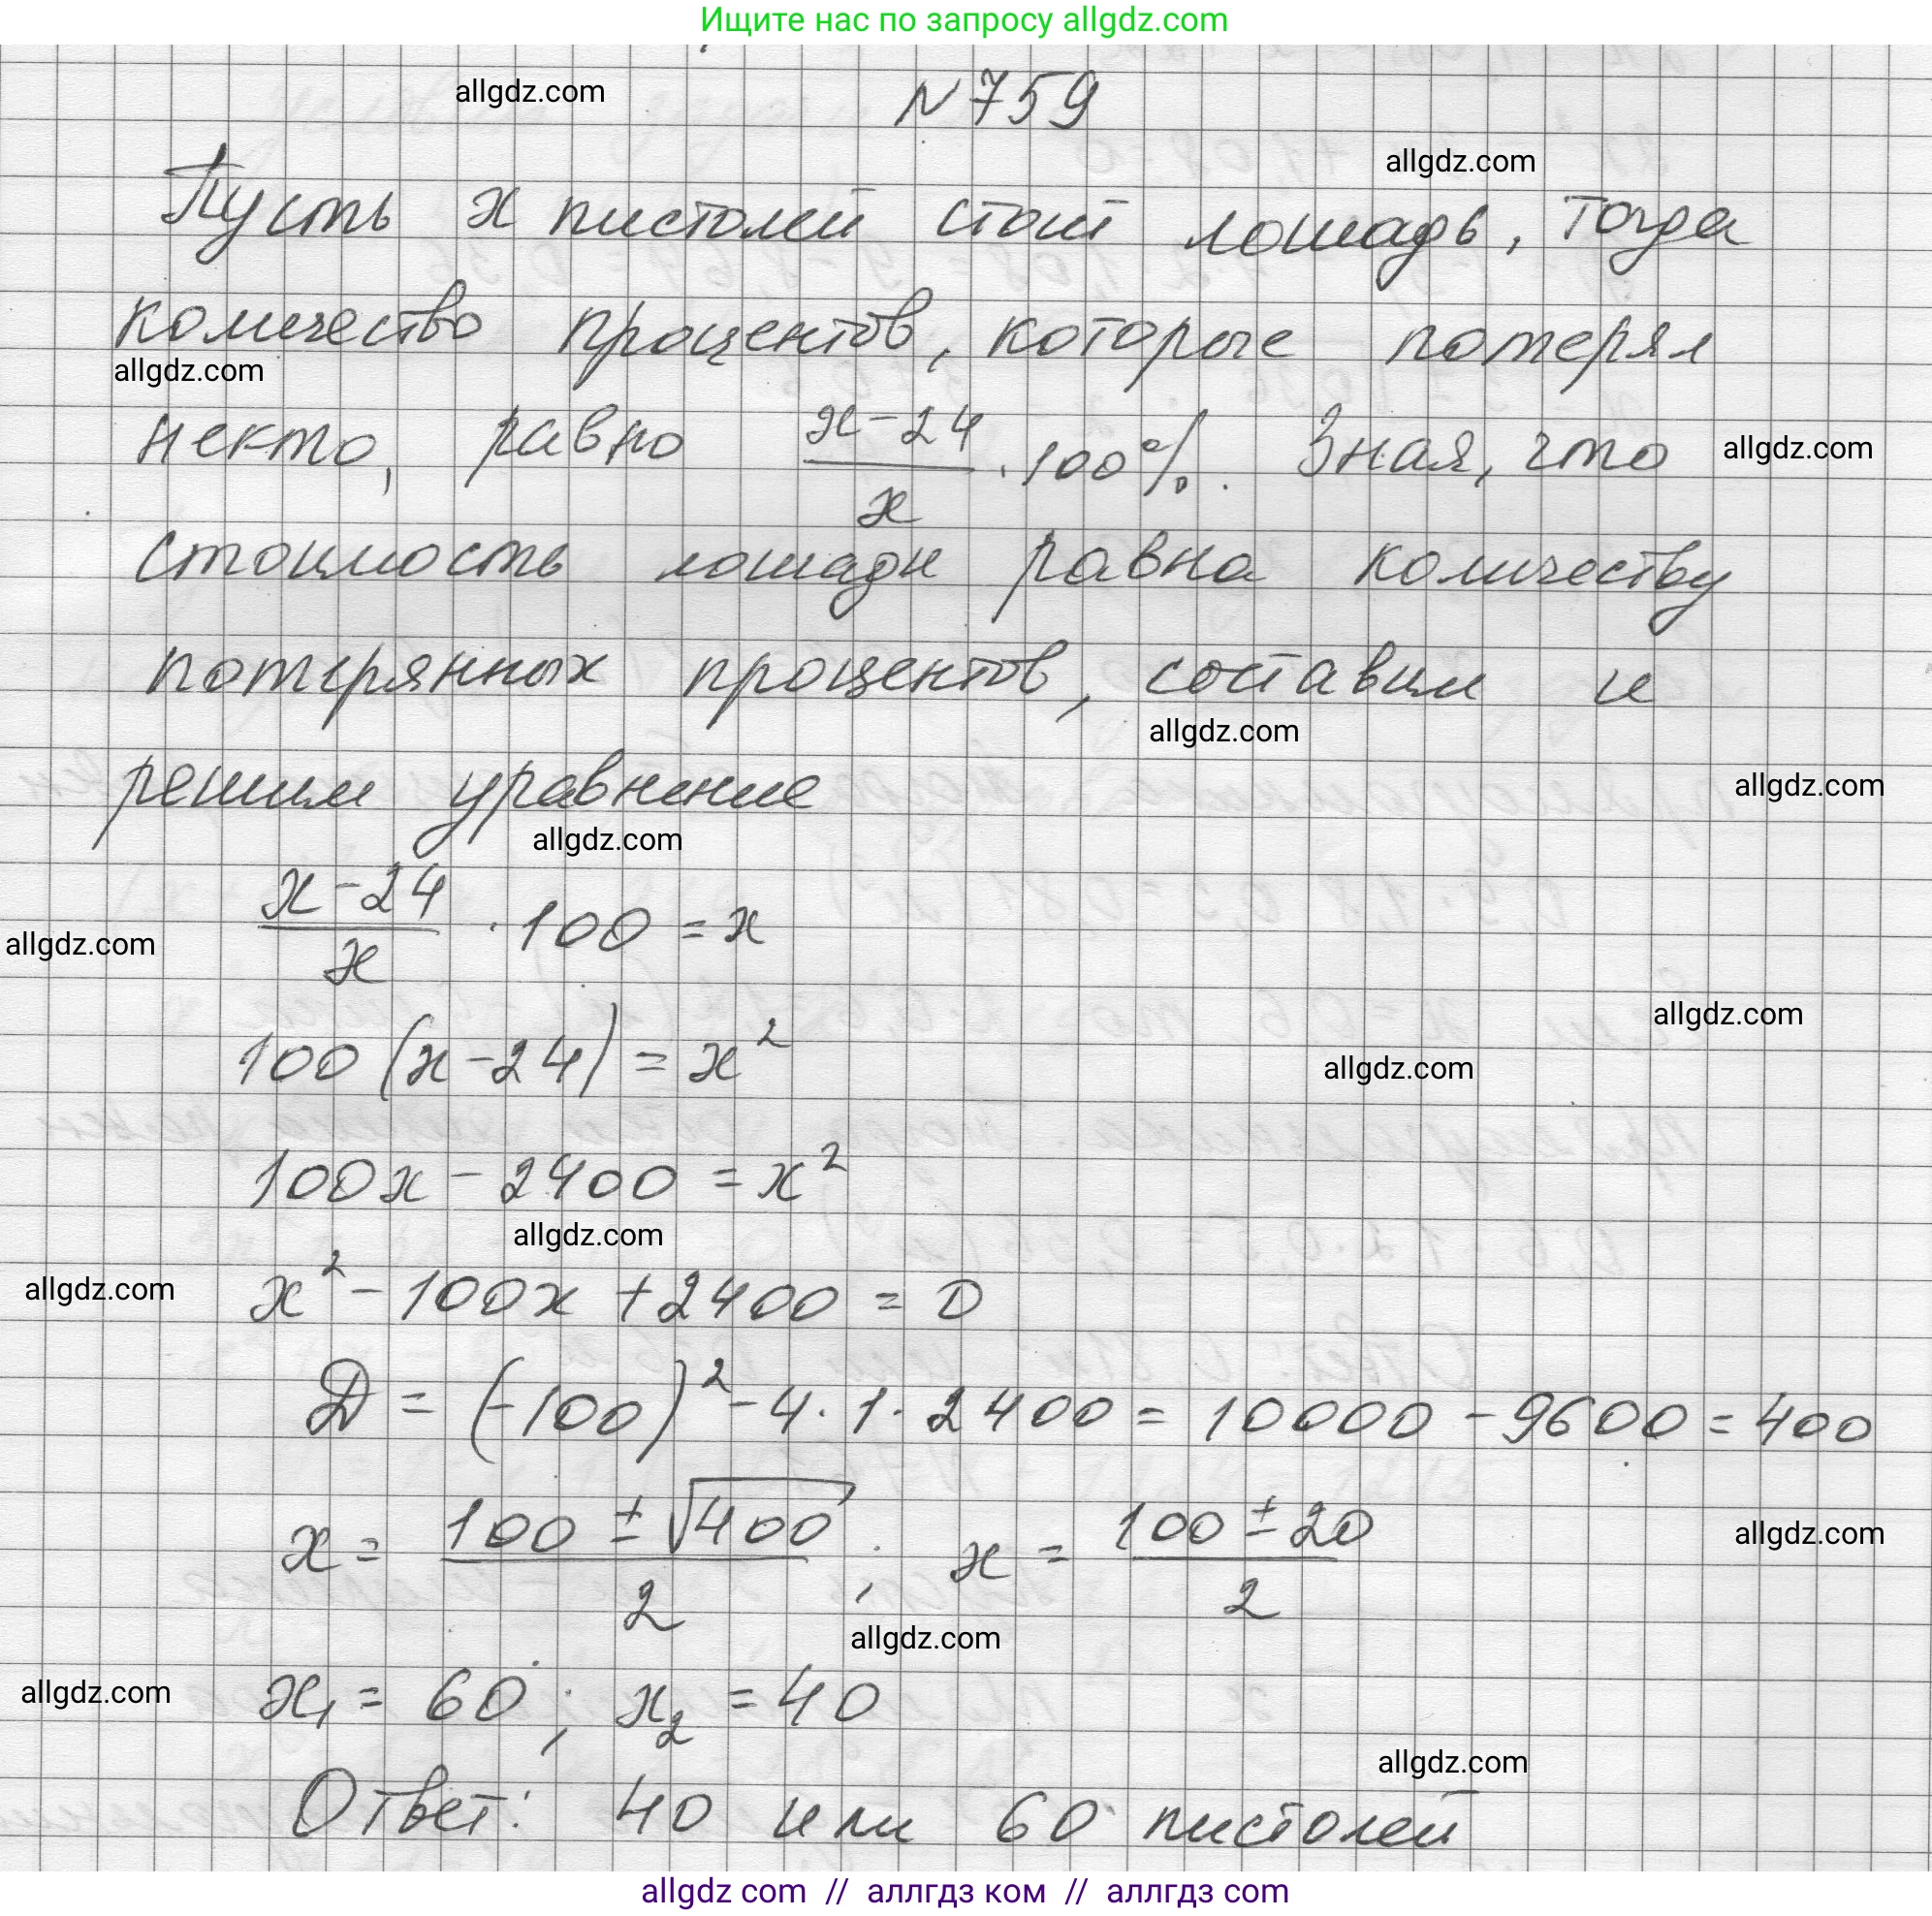 Ищите нас по запросу allgdz.com
allgdz.com
N 759
allgdz.com
Пусть x пистолей стоит лошадь, тогда
количество процентов, которые потерял
allgdz.com
некто, равно \frac{x-24}{x} · 100%. Зная, что
allgdz.com
стоимость лошади равна количеству
потерянных процентов, составим и
allgdz.com
решим уравнение
allgdz.com
allgdz.com
\frac{x-24}{x} · 100 = x
allgdz.com
allgdz.com
100(x-24) = x²
allgdz.com
100x - 2400 = x²
allgdz.com
allgdz.com
x² - 100x + 2400 = 0
D = (-100)² - 4 · 1 · 2400 = 10000 - 9600 = 400
x = \frac{100 ± √400}{2}; x = \frac{100 ± 20}{2}
allgdz.com
allgdz.com
allgdz.com
x₁ = 60; x₂ = 40
allgdz.com
Ответ: 40 или 60 пистолей
allgdz com // аллгдз ком // аллгдз com